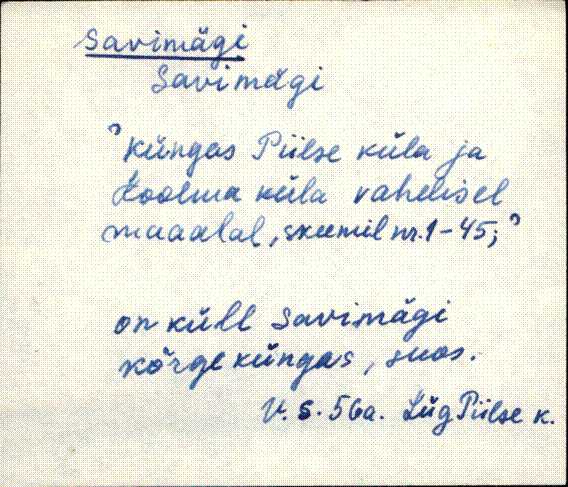 Savimägi
Savimägi
"küngas Piilse küla ja
Koolma küla vahelisel
maaalal, skeemil nr.1-45;"
on küll Savimägi
kõrge küngas, suos.
V. S. 56a. Lüg Piilse k.